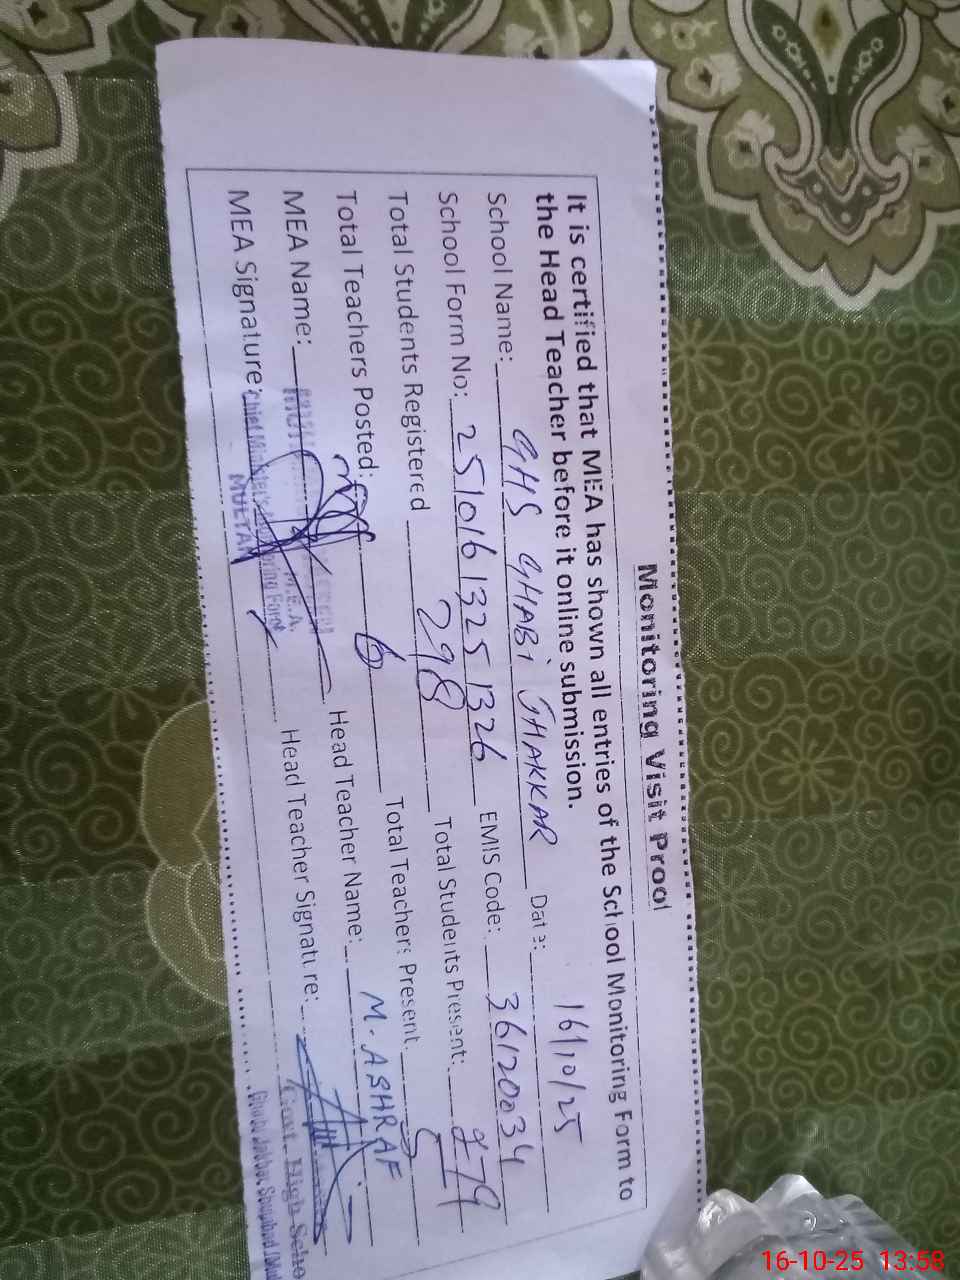 Monitoring Visit Proof
It is certified that MEA has shown all entries of the School Monitoring Form to
the Head Teacher before it online submission.
School Name: GHS GHABI JHAKKAR Date: 16/10/25
School Form No: 2510161325 1326 EMIS Code: 36120034
Total Students Registered 298 Total Students Present: 279
Total Teachers Posted: 6 Total Teachers Present. 5
MEA Name: Head Teacher Name: M. ASHRAF
MEA Signature: Head Teacher Signature:
M.E.A.
Chief Minister's Monitoring Force
MULTAN
Govt. High Scho
16-10-25 13:58